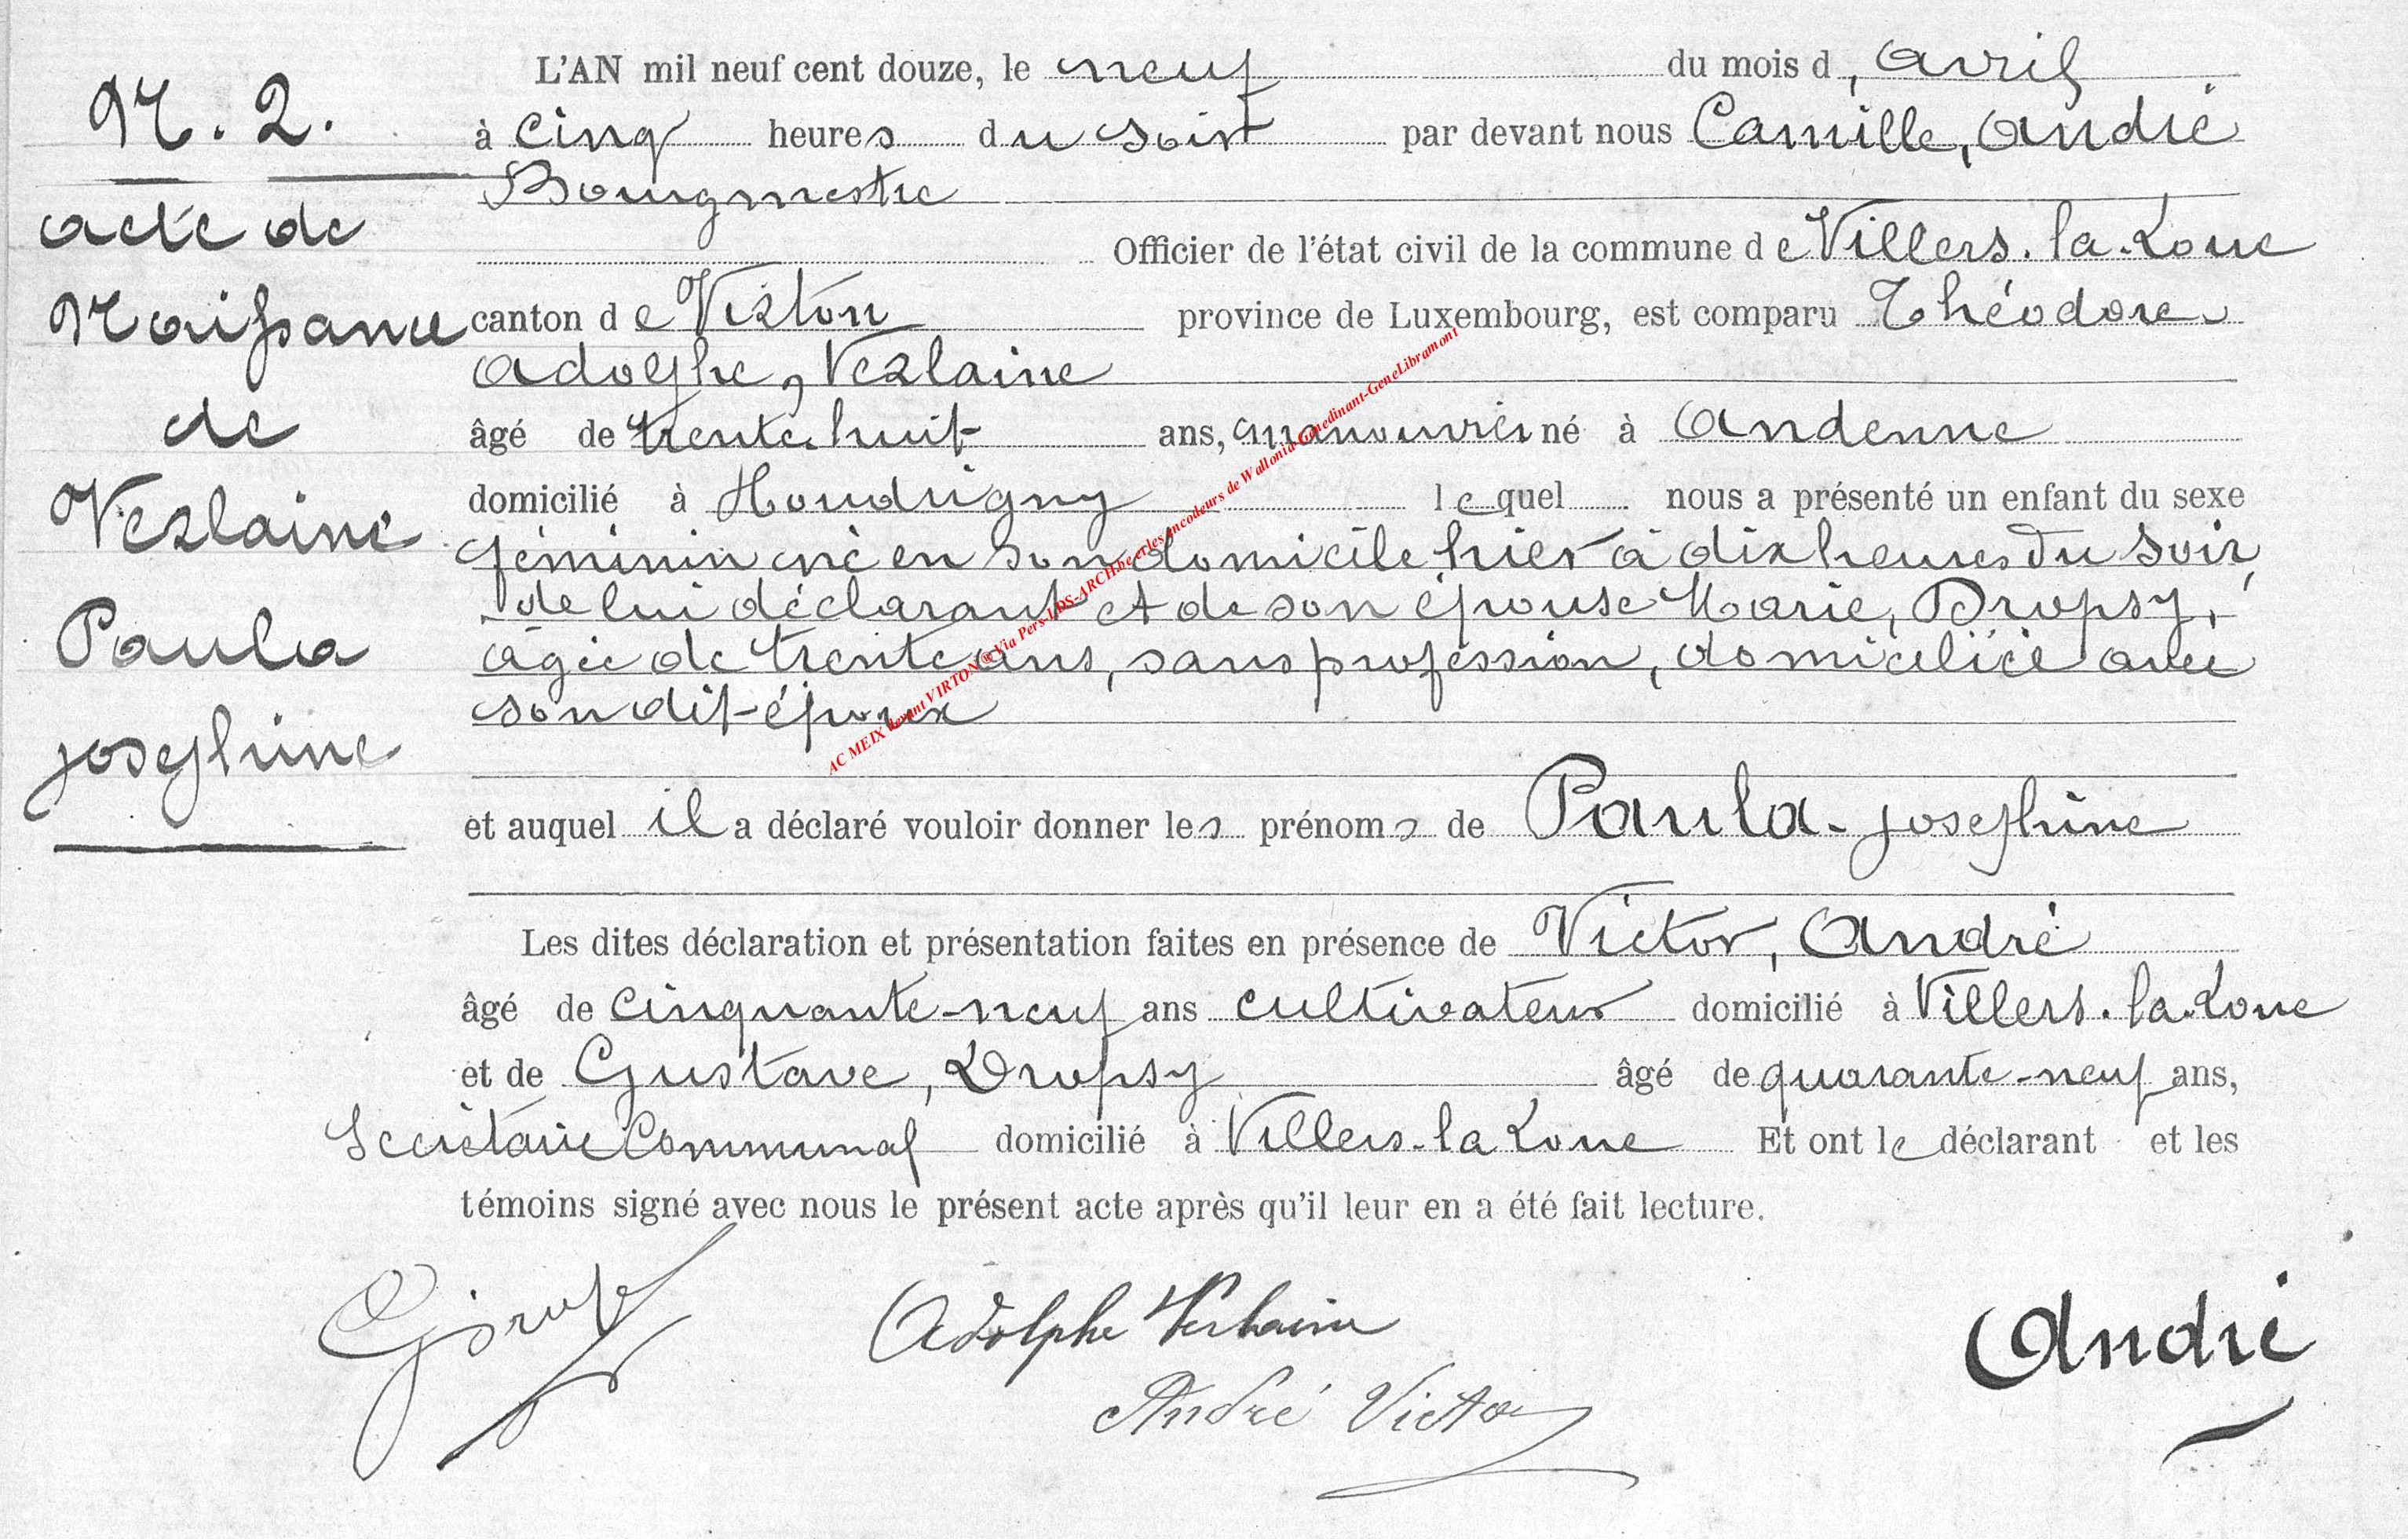 N. 2.
acte de
Naissance
de
Verlaine
Paula
josephine
L'AN mil neuf cent douze, le neuf du mois d, avril
à cinq heures du soir par devant nous Camille, André
Bourgmestre
Officier de l'état civil de la commune de Villers-la-Loue
canton de Virton province de Luxembourg, est comparu Théodore
adolphe, Verlaine
âgé de trente-huit ans, manouvrier né à Andenne
domicilié à Houdrigny lequel nous a présenté un enfant du sexe
féminin né en son domicile hier à dix heures du soir,
de lui déclarant et de son épouse Marie, Dropsy,
âgée de trente ans, sans profession, domiciliée avec
son dit-époux
et auquel il a déclaré vouloir donner les prénoms de Paula-josephine
Les dites déclaration et présentation faites en présence de Victor, André
âgé de cinquante-neuf ans cultivateur domicilié à Villers-la-Loue
et de Gustave, Dropsy âgé de quarante-neuf ans,
Secrétaire Communal domicilié à Villers-la-Loue Et ont le déclarant et les
témoins signé avec nous le présent acte après qu'il leur en a été fait lecture.
Adolphe Verlaine
André Victor
André
AC MEIX devant VIRTON ® Via Pers-LDS-ARCH.be et les encodeurs de Wallonia-Genedinant-GeneLibramont